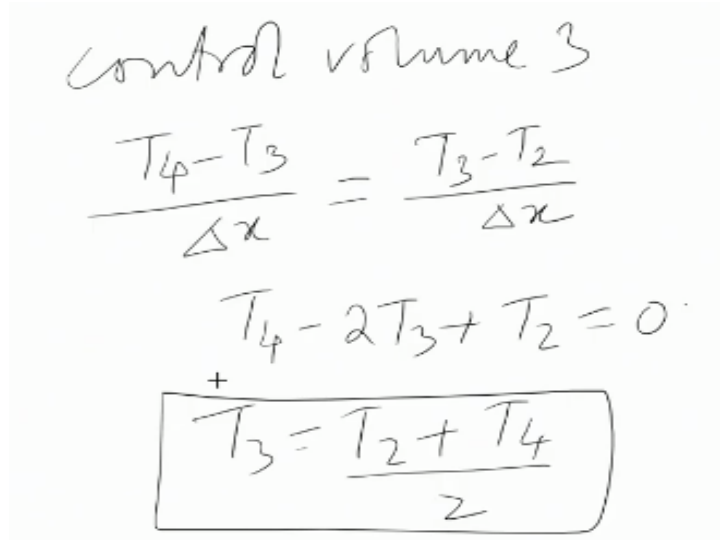 control volume 3
(T₄ - T₃)/Δx = (T₃ - T₂)/Δx
T₄ - 2T₃ + T₂ = 0
T₃ = (T₂ + T₄)/2